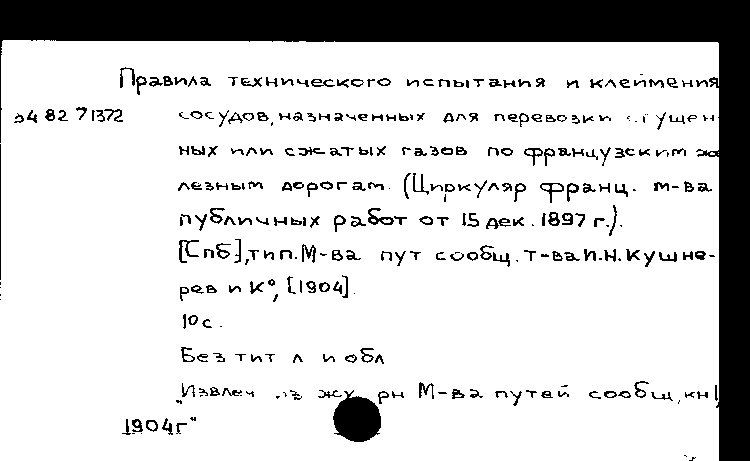 Правила технического испытания и клеймения
э4 82 71372 сосудов, назначенных для перевозки сгущен-
ных или сжатых газов по французским же
лезным дорогам. (Циркуляр франц. м-ва
публичных работ от 15 дек. 1897 г.).
[Спб], тип. М-ва пут сообщ. т-ва И.Н. Кушне-
рев и К°, [1904].
10 с.
Без тит л и обл
"Извлеч из журн М-ва путей сообщ, кн 1,
1904г"